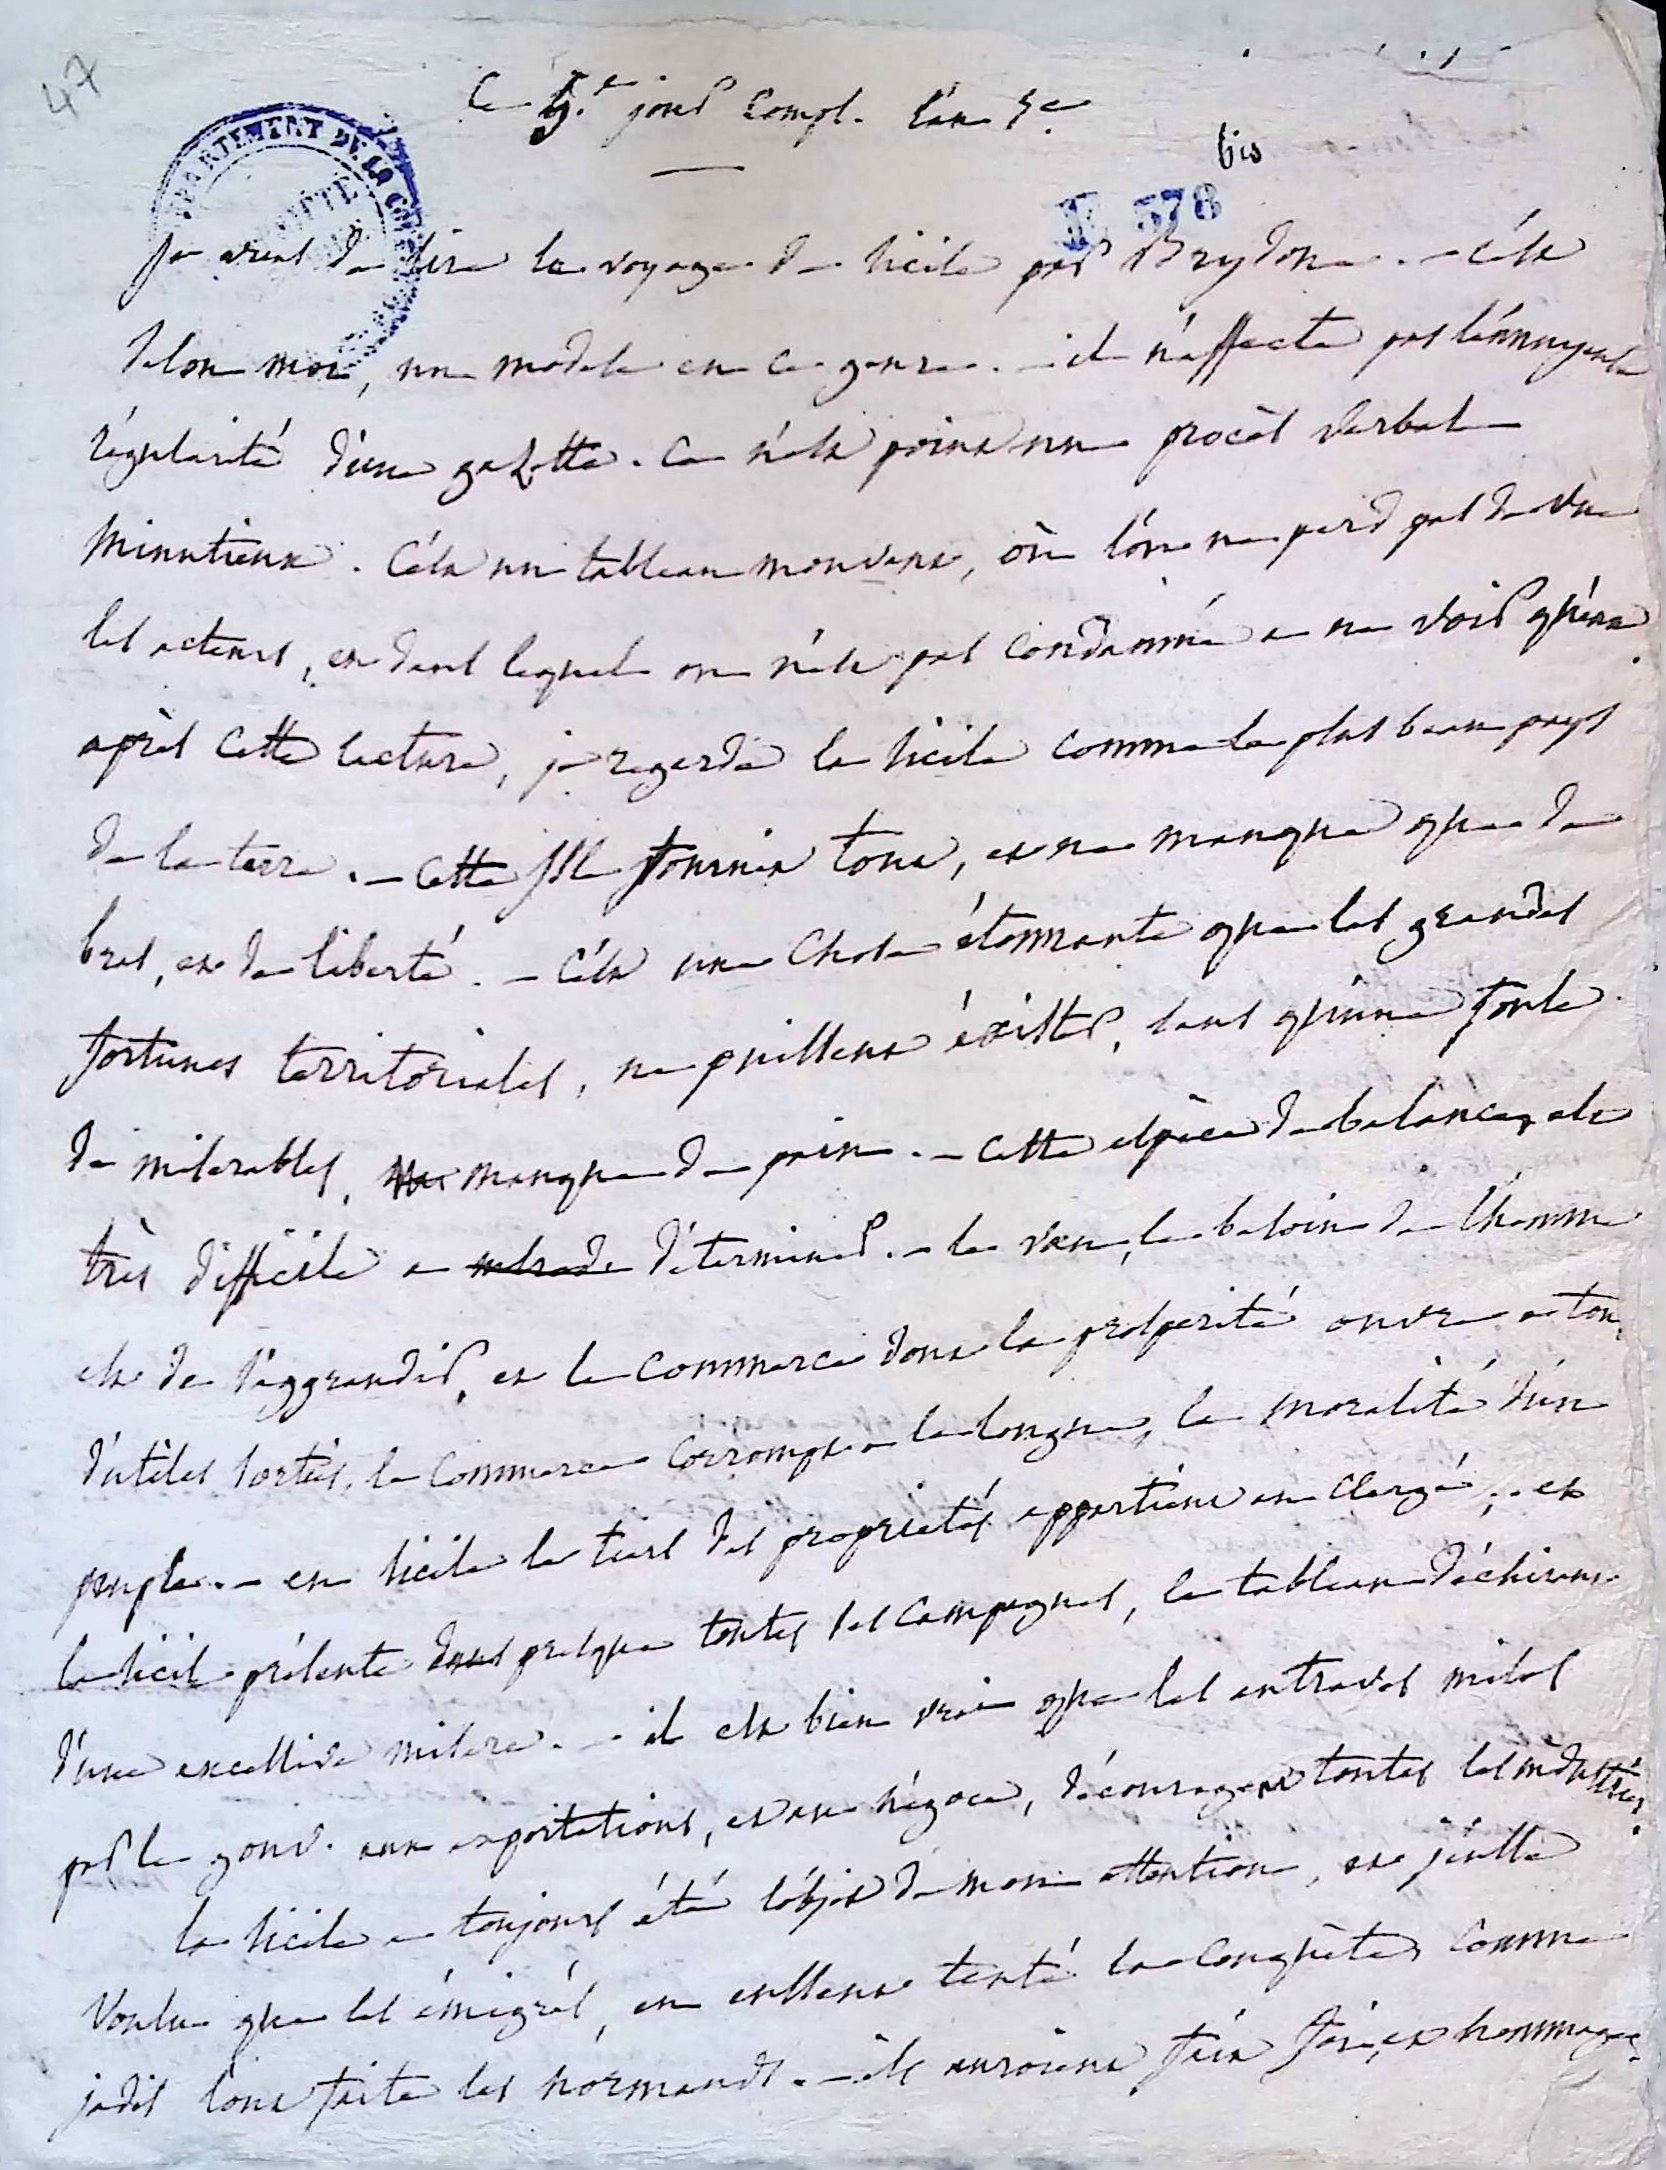 47
Ce 5.e jour Compl. l'an 5e.
bis
II 578
DEPARTEMENT DE LA CO
je viens de lire le voyage de sicile par Brydone. - c'est
selon moi, un modele en ce genre. - il n'affecte pas l'ennuyeuse
régularité d'une gazette. Ce n'est point un procès verbal
minutieux. C'est un tableau mouvant, où l'on ne perd pas de vüe
les acteurs, et dans lequel on n'est pas condamné a ne voir qu'eux.
après cette lecture, je regarde la sicile comme le plus beau pays
de la terre. - cette isle fournit tout, et ne manque que de
bras, et de liberté. - C'est une chose étonnante que les grandes
fortunes territoriales, ne puissent éxister, sans qu'une foule
de miserables, manque de pain. - cette espèce de balance, est
très difficile a déterminer. - le vœu, le besoin de l'homme
est de s'aggrandir, et le commerce dont la prosperité ouvre a tous
d'utiles sorties, le commerce corrompt a la longue, la moralité d'un
peuple. - en sicile le tiers des proprietés appartient au clergé, et
la sicile présente dans presque toutes ses campagnes, le tableau déchirant
d'une excessive misere. - il est bien vrai que les entraves mises
par le gouv. aux exportations, et au négoce, découragent toutes les industries.
la sicile a toujours été l'objet de mon attention, et j'eusse
voulu que les émigrés, en eussent tenté la conquête, comme
jadis l'ont faite les normands. - ils auroient fait foi, et hommage